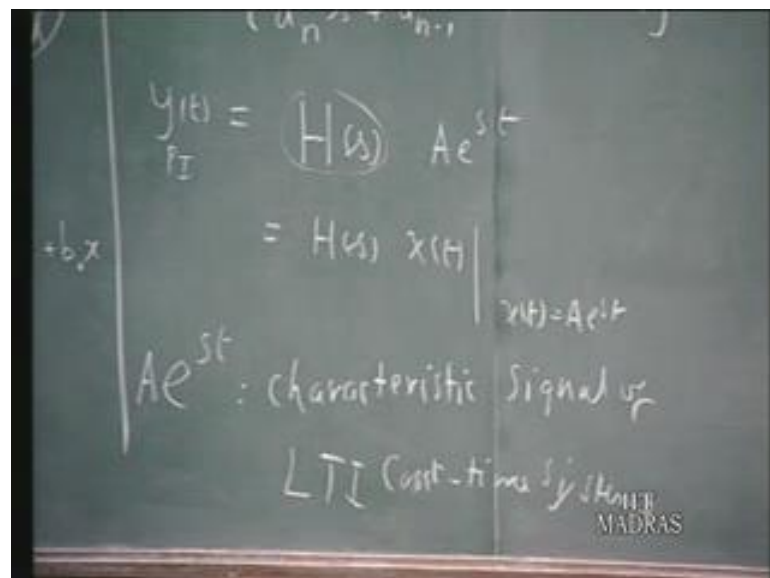 (aₙ s + aₙ₋₁ }
y(t) = H(s) Ae^st
PI
+b₀x
= H(s) x(t) |
x(t)=Ae^st
Ae^st : Characteristic Signal of
LTI Cont-time System
MADRAS